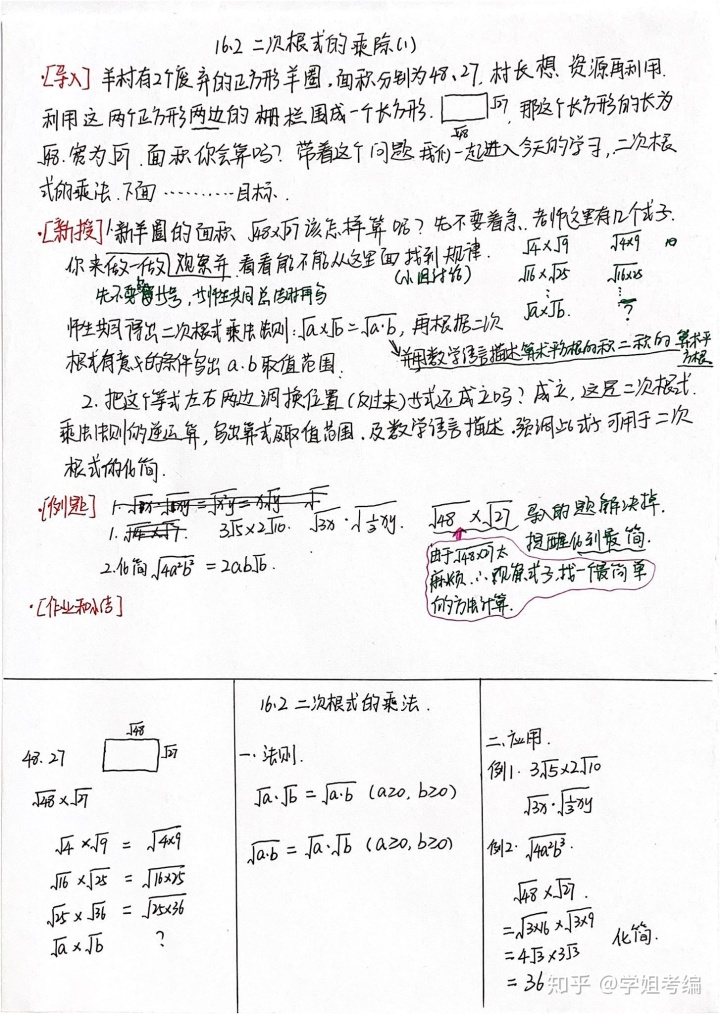 16.2 二次根式的乘除(1)
·[导入] 羊村有2个废弃的正方形羊圈,面积分别为48、27. 村长想 资源再利用.
利用这两个正方形两边的栅栏围成一个长方形. √27 √48 , 那这个长方形的长为
√48. 宽为√27. 面积你会算吗? 带着这个问题我们一起进入今天的学习, 二次根
式的乘法. 下面 ……… 目标.
·[新授] 1.新羊圈的面积 √48×√27该怎样算呢? 先不要着急. 老师这里有几个式子.
你来做一做 观察并 看看能不能从这里面找到规律.
(小组讨论)
√4×√9 √4×9
√16×√25 √16×25
⋮ ⋮
√a×√b. ?
师生共同得出二次根式乘法法则: √a×√b=√a·b, 再根据二次
根式有意义的条件写出 a.b 取值范围.
并用数学语言描述算术平方根的积=积的算术平方根
2. 把这个等式左右两边调换位置(反过来)此式还成立吗? 成立, 这是二次根式
乘法法则的逆运算, 写出算式及取值范围. 及数学语言描述. 强调此式子可用于二次
根式的化简.
·[例题]
1. 3√5×2√10. √3x·√⅓xy.
2.化简√4a²b³ = 2ab√b.
√48×√27 导入的题解决掉.
提醒化到最简.
由于√48×27太
麻烦. ∴观察式子,找一个最简单
的方法计算.
·[作业和小结]
48. 27 √48 √27
√48×√27
√4×√9 = √4×9
√16×√25 = √16×25
√25×√36 = √25×36
√a×√b ?
16.2 二次根式的乘法.
一. 法则.
√a·√b = √a·b (a≥0, b≥0)
√a·b = √a·√b (a≥0, b≥0)
二.应用.
例1. 3√5×2√10
√3x·√⅓xy
例2. √4a²b³.
√48×√27.
=√3×16×√3×9
=4√3×3√3 化简.
=36
知乎 @学姐考编